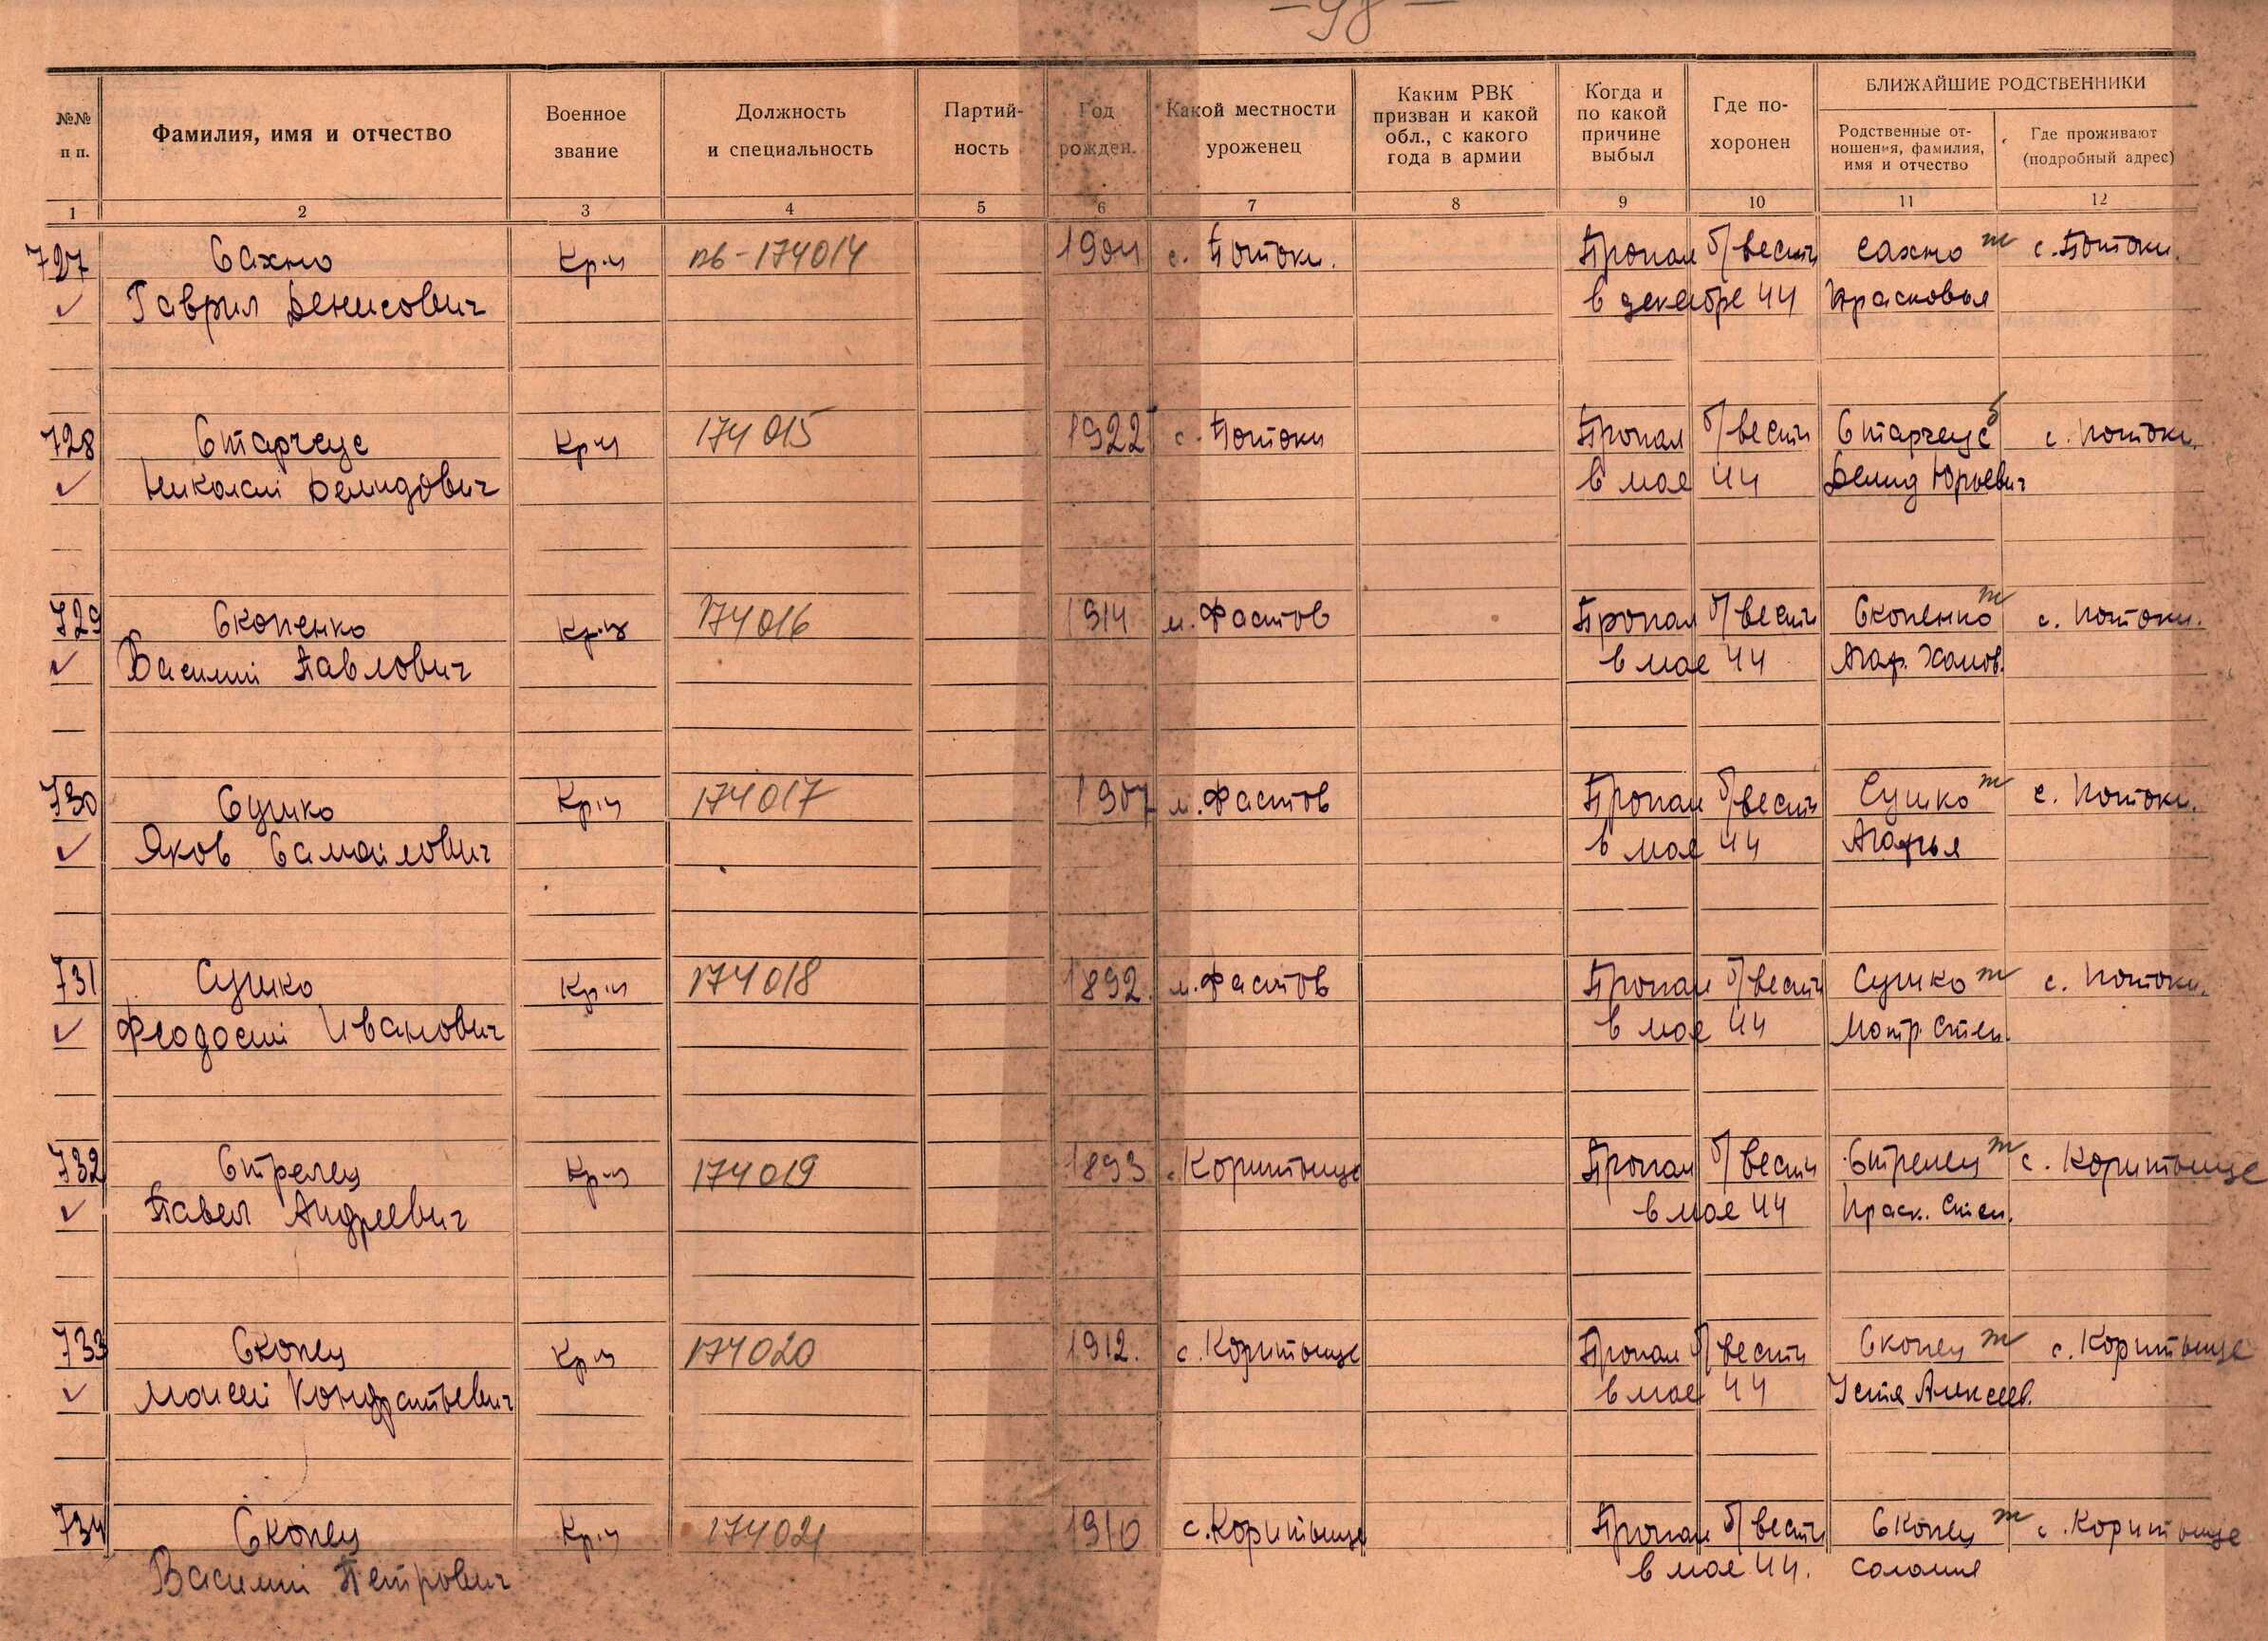 – 98 –
№№ п п.
Фамилия, имя и отчество
Военное звание
Должность и специальность
Партий-ность
Год рожден.
Какой местности уроженец
Каким РВК призван и какой обл., с какого года в армии
Когда и по какой причине выбыл
Где по-хоронен
БЛИЖАЙШИЕ РОДСТВЕННИКИ
Родственные от-ношения, фамилия, имя и отчество
Где проживают (подробный адрес)
1 2 3 4 5 6 7 8 9 10 11 12
727 Сахно Кр-ц пв-174014 1904 с. Потоки. Пропал б/вести Сахно ж с. Потоки.
✓ Гаврил Денисович в декабре 44 Прасковья
728 Старчеус Кр-ц 174015 1922 с. Потоки Пропал б/вести Старчеус с. Потоки
✓ Николай Демидович в мае 44 Демид Юрьевич
729 Скопенко Кр-ц 174016 1914 м. Фастов Пропал б/вести Скопенко ж с. Потоки.
✓ Василий Павлович в мае 44 Агаф.
730 Сушко Кр-ц 174017 1907 м. Фастов Пропал б/вести Сушко ж с. Потоки.
✓ Яков Самойлович в мае 44 Агафья
731 Сушко Кр-ц 174018 1892 м. Фастов Пропал б/вести Сушко ж с. Потоки.
✓ Феодосий Иванович в мае 44 Мотр. Степ.
732 Стрелец Кр-ц 174019 1893 с. Коритыще Пропал б/вести Стрелец ж с. Коритыще
✓ Павел Андреевич в мае 44 Праск. Степ.
733 Скопец Кр-ц 174020 1912. с. Коритыще Пропал б/вести Скопец ж с. Коритыще
✓ Моисей Кондратьевич в мае 44 Устя Алексеев.
734 Скопец Кр-ц 174021 1910 с. Коритыще Пропал б/вести Скопец ж с. Коритыще
Василий Петрович в мае 44. Соломия